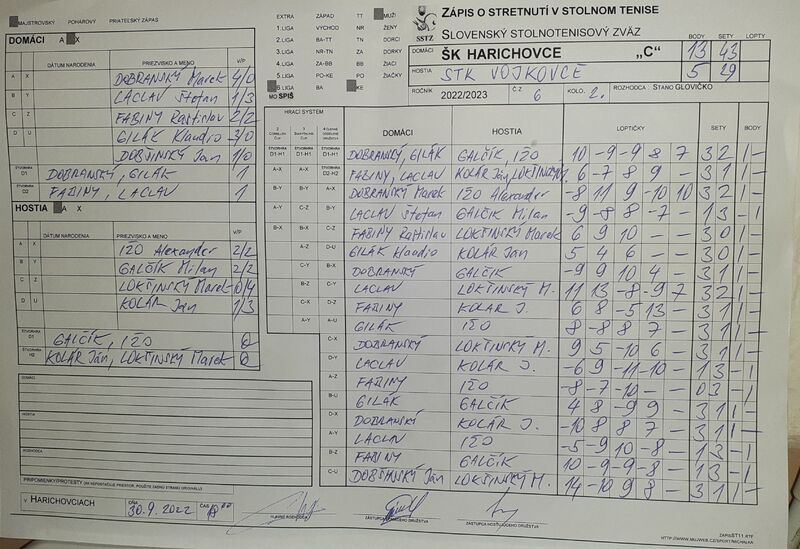 MAJSTROVSKÝ POHÁROVÝ PRIATEĽSKÝ ZÁPAS
DOMÁCI A X
DÁTUM NARODENIA PRIEZVISKO A MENO V/P
A X DOBRANSKÝ Marek 4/0
B Y LACLAV Štefan 1/3
C Z FABINY Rastislav 2/2
D U GILÁK Klaudio 3/0
DOBŠINSKÝ Ján 1/0
ŠTVORHRA D1 DOBRANSKÝ, GILÁK 1
ŠTVORHRA D2 FABINY, LACLAV 1
HOSTIA A X
DÁTUM NARODENIA PRIEZVISKO A MENO V/P
A X IŽO Alexander 2/2
B Y GALČÍK Milan 2/2
C Z LOKŠINSKÝ Marek 0/4
D U KOLÁR Ján 1/3
ŠTVORHRA GALČÍK, IŽO 0
ŠTVORHRA H2 KOLÁR Ján, LOKŠINSKÝ Marek 0
DOMÁCI
HOSTIA
ROZHODCA
PRIPOMIENKY/PROTESTY (AK NEPOSTAČUJE PRIESTOR, POUŽITE ZADNÚ STRANU ORIGINÁLU)
V HARICHOVCIACH DŇA 30.9.2022 ČAS
HLAVNÝ ROZHODCA
ZÁSTUPCA DOMÁCEHO DRUŽSTVA
ZÁSTUPCA HOSŤUJÚCEHO DRUŽSTVA
EXTRA ZÁPAD TT MUŽI
1.LIGA VÝCHOD NR ŽENY
2.LIGA BA-TT TN DORCI
3.LIGA NR-TN ZA DORKY
4.LIGA ZA-BB BB ŽIACI
5.LIGA PO-KE PO ŽIAČKY
6.LIGA BA KE
MO SPIŠ
SSTZ
ZÁPIS O STRETNUTÍ V STOLNOM TENISE
SLOVENSKÝ STOLNOTENISOVÝ ZVÄZ
BODY SETY LOPTY
DOMÁCI ŠK HARICHOVCE „C“ 13 43
HOSTIA STK VOJKOVCE 5 29
ROČNÍK 2022/2023 Č.Z 6 KOLO 2. ROZHODCA STANO GLOVIČKO
HRACÍ SYSTÉM
DOMÁCI HOSTIA LOPTIČKY SETY BODY
D1-H1 D1-H1 D1-H1 DOBRANSKÝ, GILÁK GALČÍK, IŽO 10 -9 -9 8 7 3 2 1 -
A-X A-X D2-H2 FABINY, LACLAV KOLÁR Ján, LOKŠINSKÝ 6 -7 8 9 - 3 1 1 -
B-Y B-Y A-X DOBRANSKÝ Marek IŽO Alexander -8 11 9 -10 10 3 2 1 -
A-Y C-Z B-Y LACLAV Štefan GALČÍK Milan -9 -8 8 -7 - 1 3 - 1
B-X B-X C-Z FABINY Rastislav LOKŠINSKÝ Marek 6 9 10 - - 3 0 1 -
A-Z D-U GILÁK Klaudio KOLÁR Ján 5 4 6 - - 3 0 1 -
C-Y B-X DOBRANSKÝ GALČÍK -9 9 10 4 - 3 1 1 -
B-Z C-Y LACLAV LOKŠINSKÝ M. 11 13 -8 -9 7 3 2 1 -
C-X D-Z FABINY KOLÁR J. 6 8 -5 13 - 3 1 1 -
A-Y A-U GILÁK IŽO 8 -8 8 7 - 3 1 1 -
C-X DOBRANSKÝ LOKŠINSKÝ M. 9 5 -10 6 - 3 1 1 -
D-Y LACLAV KOLÁR J. -6 9 -11 -10 - 1 3 - 1
A-Z FABINY IŽO -8 -7 -10 - - 0 3 - 1
B-U GILÁK GALČÍK 4 8 -9 9 - 3 1 1 -
D-X DOBRANSKÝ KOLÁR J. -10 8 8 7 - 3 1 1 -
A-Y LACLAV IŽO -5 -9 10 -8 - 1 3 - 1
B-Z FABINY GALČÍK 10 -9 -9 -8 - 1 3 - 1
C-U DOBŠINSKÝ Ján LOKŠINSKÝ M. 14 -10 9 8 - 3 1 1 -
ZAPISST11.RTF
HTTP://WWW.MUJWEB.CZ/SPORT/MICHALKA